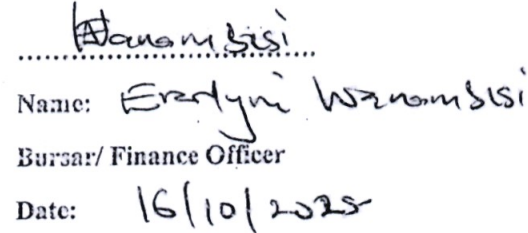 Wanambisi
Name: Everlyni Wanambisi
Bursar/ Finance Officer
Date: 16/10/2025